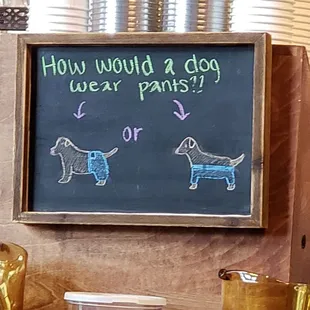 How would a dog
wear pants!?
or